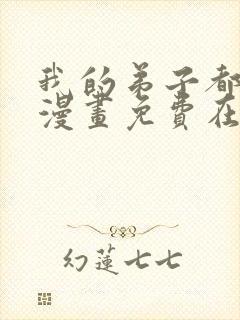 我的弟子都
漫畫免費在
幻蓮七七